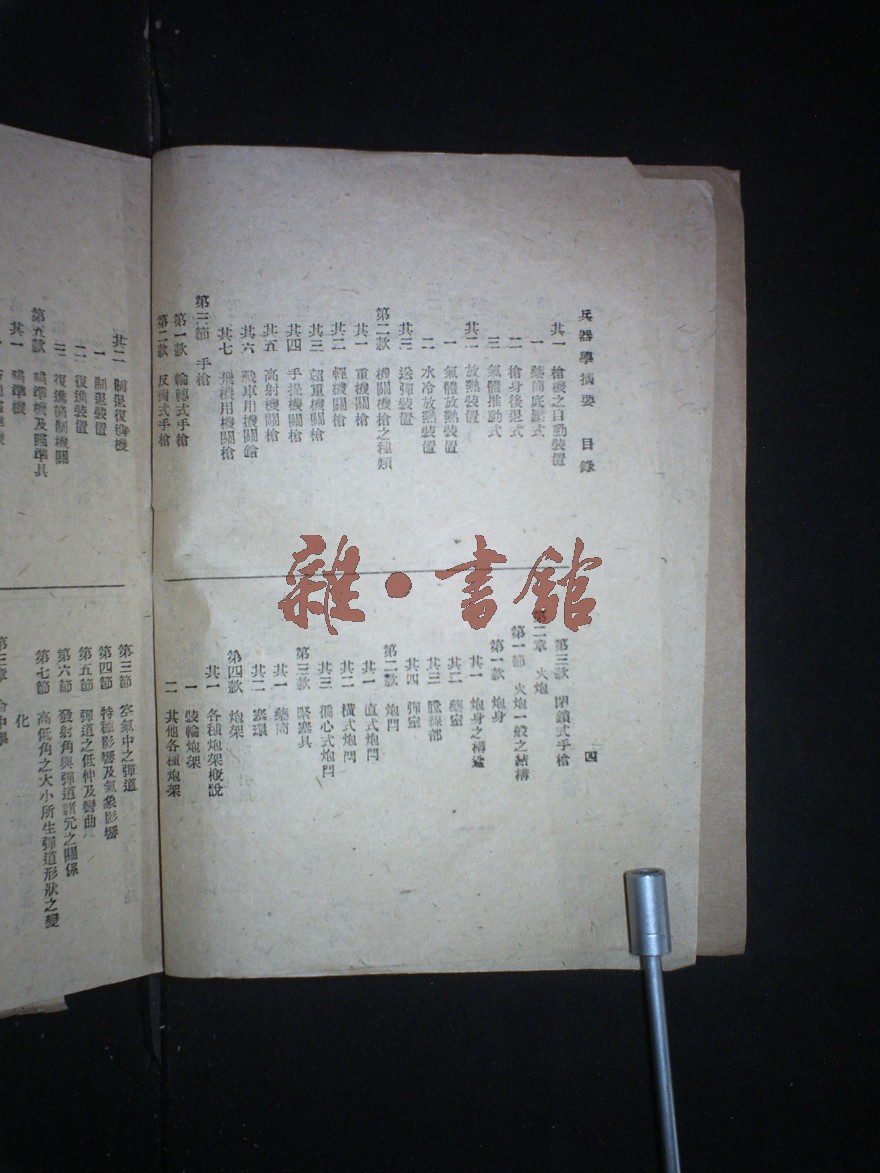 兵器學摘要　目錄
四
其一　槍機之自動裝置
一　藥筒底壓式
二　槍身後退式
三　氣體推動式
其二　放熱裝置
一　氣體放熱裝置
二　水冷放熱裝置
其三　送彈裝置
第二款　機關機槍之種類
其一　重機關槍
其二　輕機關槍
其三　超重機關槍
其四　手提機關槍
其五　高射機關槍
其六　戰車用機關鎗
其七　飛機用機關槍
第三節　手槍
第一款　輪轉式手槍
第二款　反衝式手槍
第三款　閉鎖式手槍
第二章　火炮
第一節　火炮一般之結構
第一款　炮身
其一　炮身之構造
其二　藥室
其三　膛線部
其四　彈室
第二款　炮閂
其一　直式炮閂
其二　橫式炮閂
其三　偏心式炮閂
第三款　緊塞具
其一　藥筒
其二　塞環
第四款　炮架
其一　各種炮架概說
一　裝輪炮架
二　其他各種炮架
其二　制退復進機
一　制退裝置
二　復進裝置
三　復進節制機關
第五款　瞄準機及瞄準具
其一　瞄準機
第三節　空氣中之彈道
第四節　特種影響及氣象影響
第五節　彈道之低伸及彎曲
第六節　發射角與彈道諸元之關係
第七節　高低角之大小所生彈道形狀之變
化
雜·書館